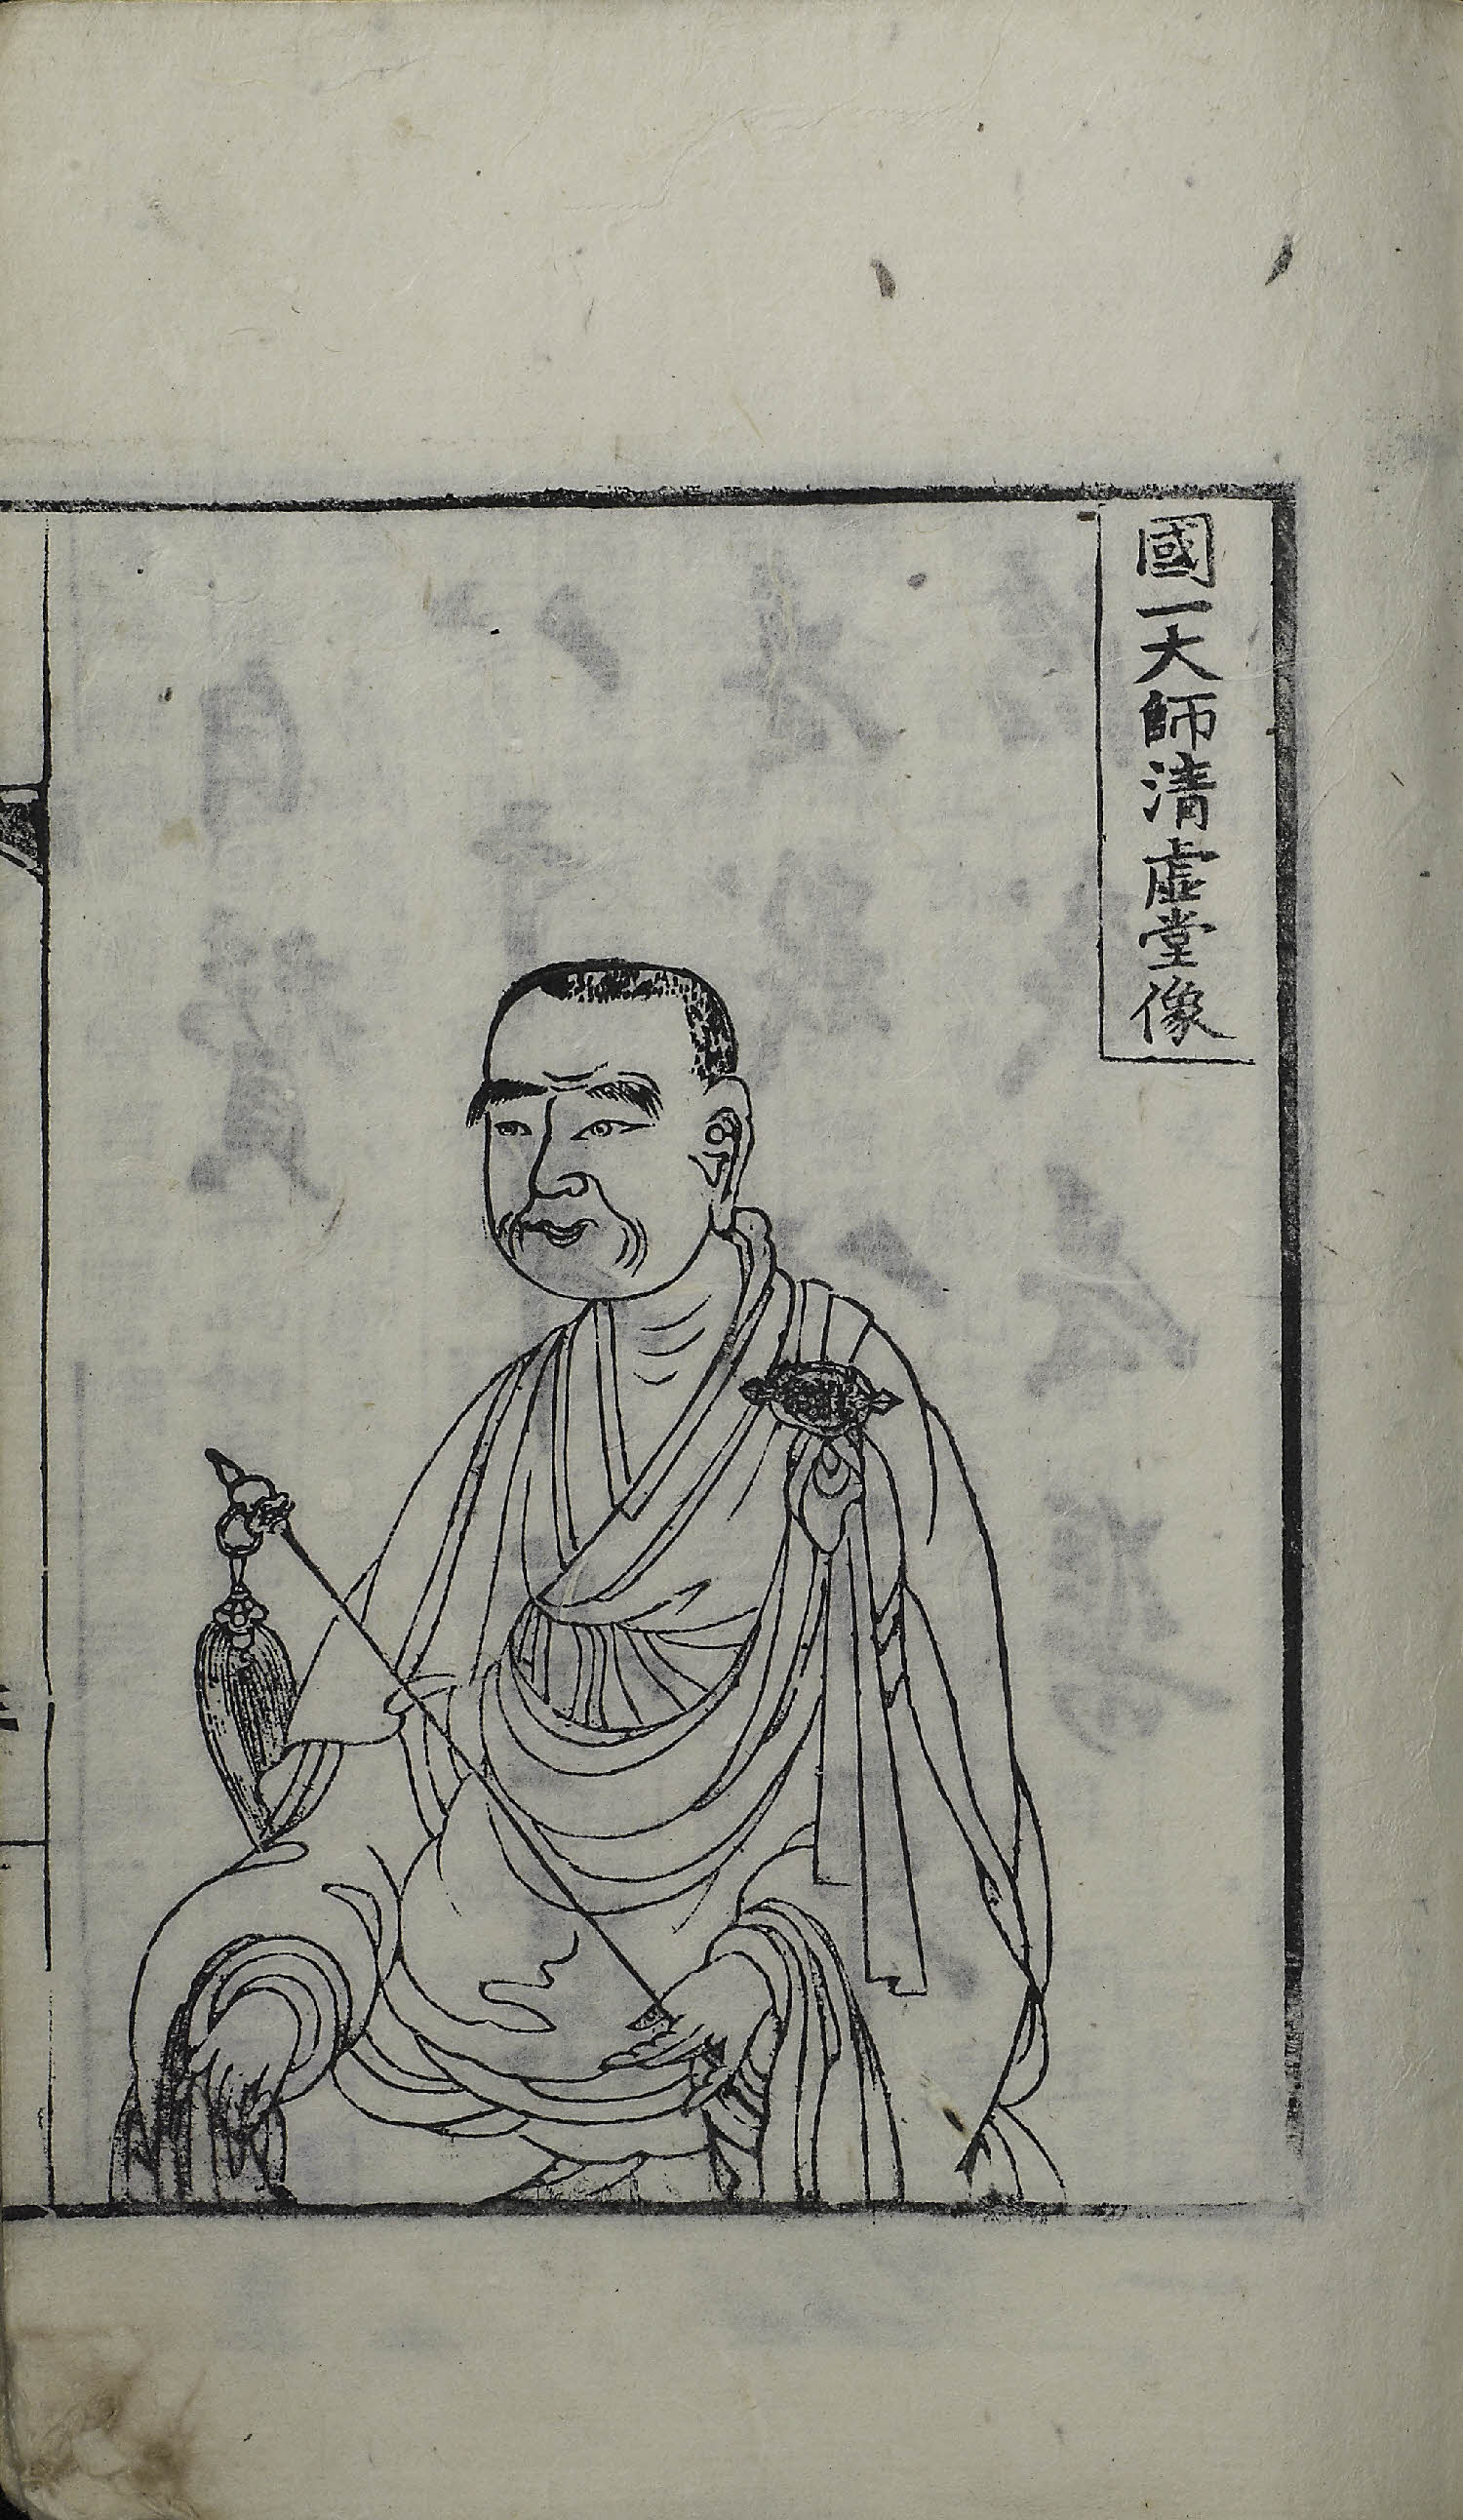 國一大師清虛堂像